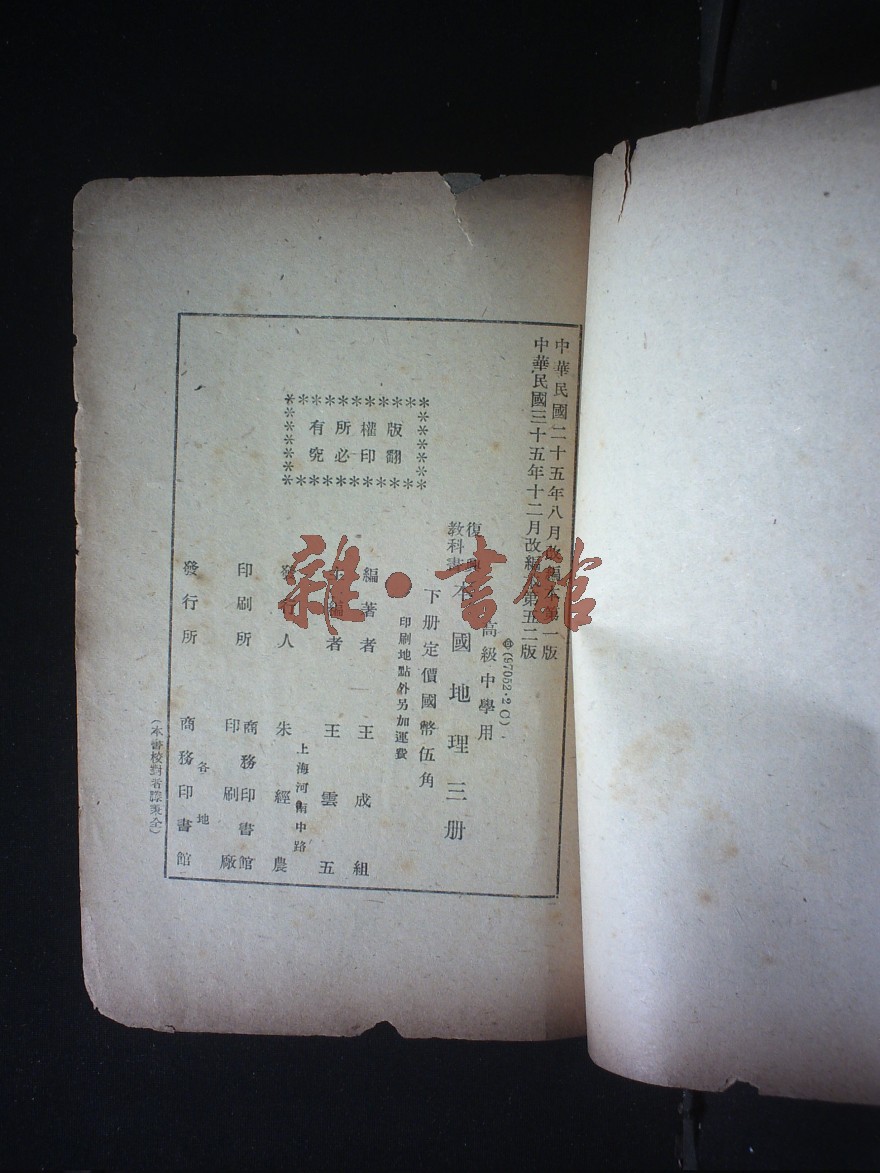 中華民國二十五年八月改編本第一版
中華民國三十五年十二月改編本第五二版
(57052·2C)
高級中學用
復興
教科書
本國地理三册
下册定價國幣伍角
印刷地點外另加運費
版權所有
翻印必究
編著者 王成組
主編者 王雲五
上海河南中路
發行人 朱經農
印刷所 商務印書館
印刷廠
各地
發行所 商務印書館
(本書校對者滕秉全)
雜·書館